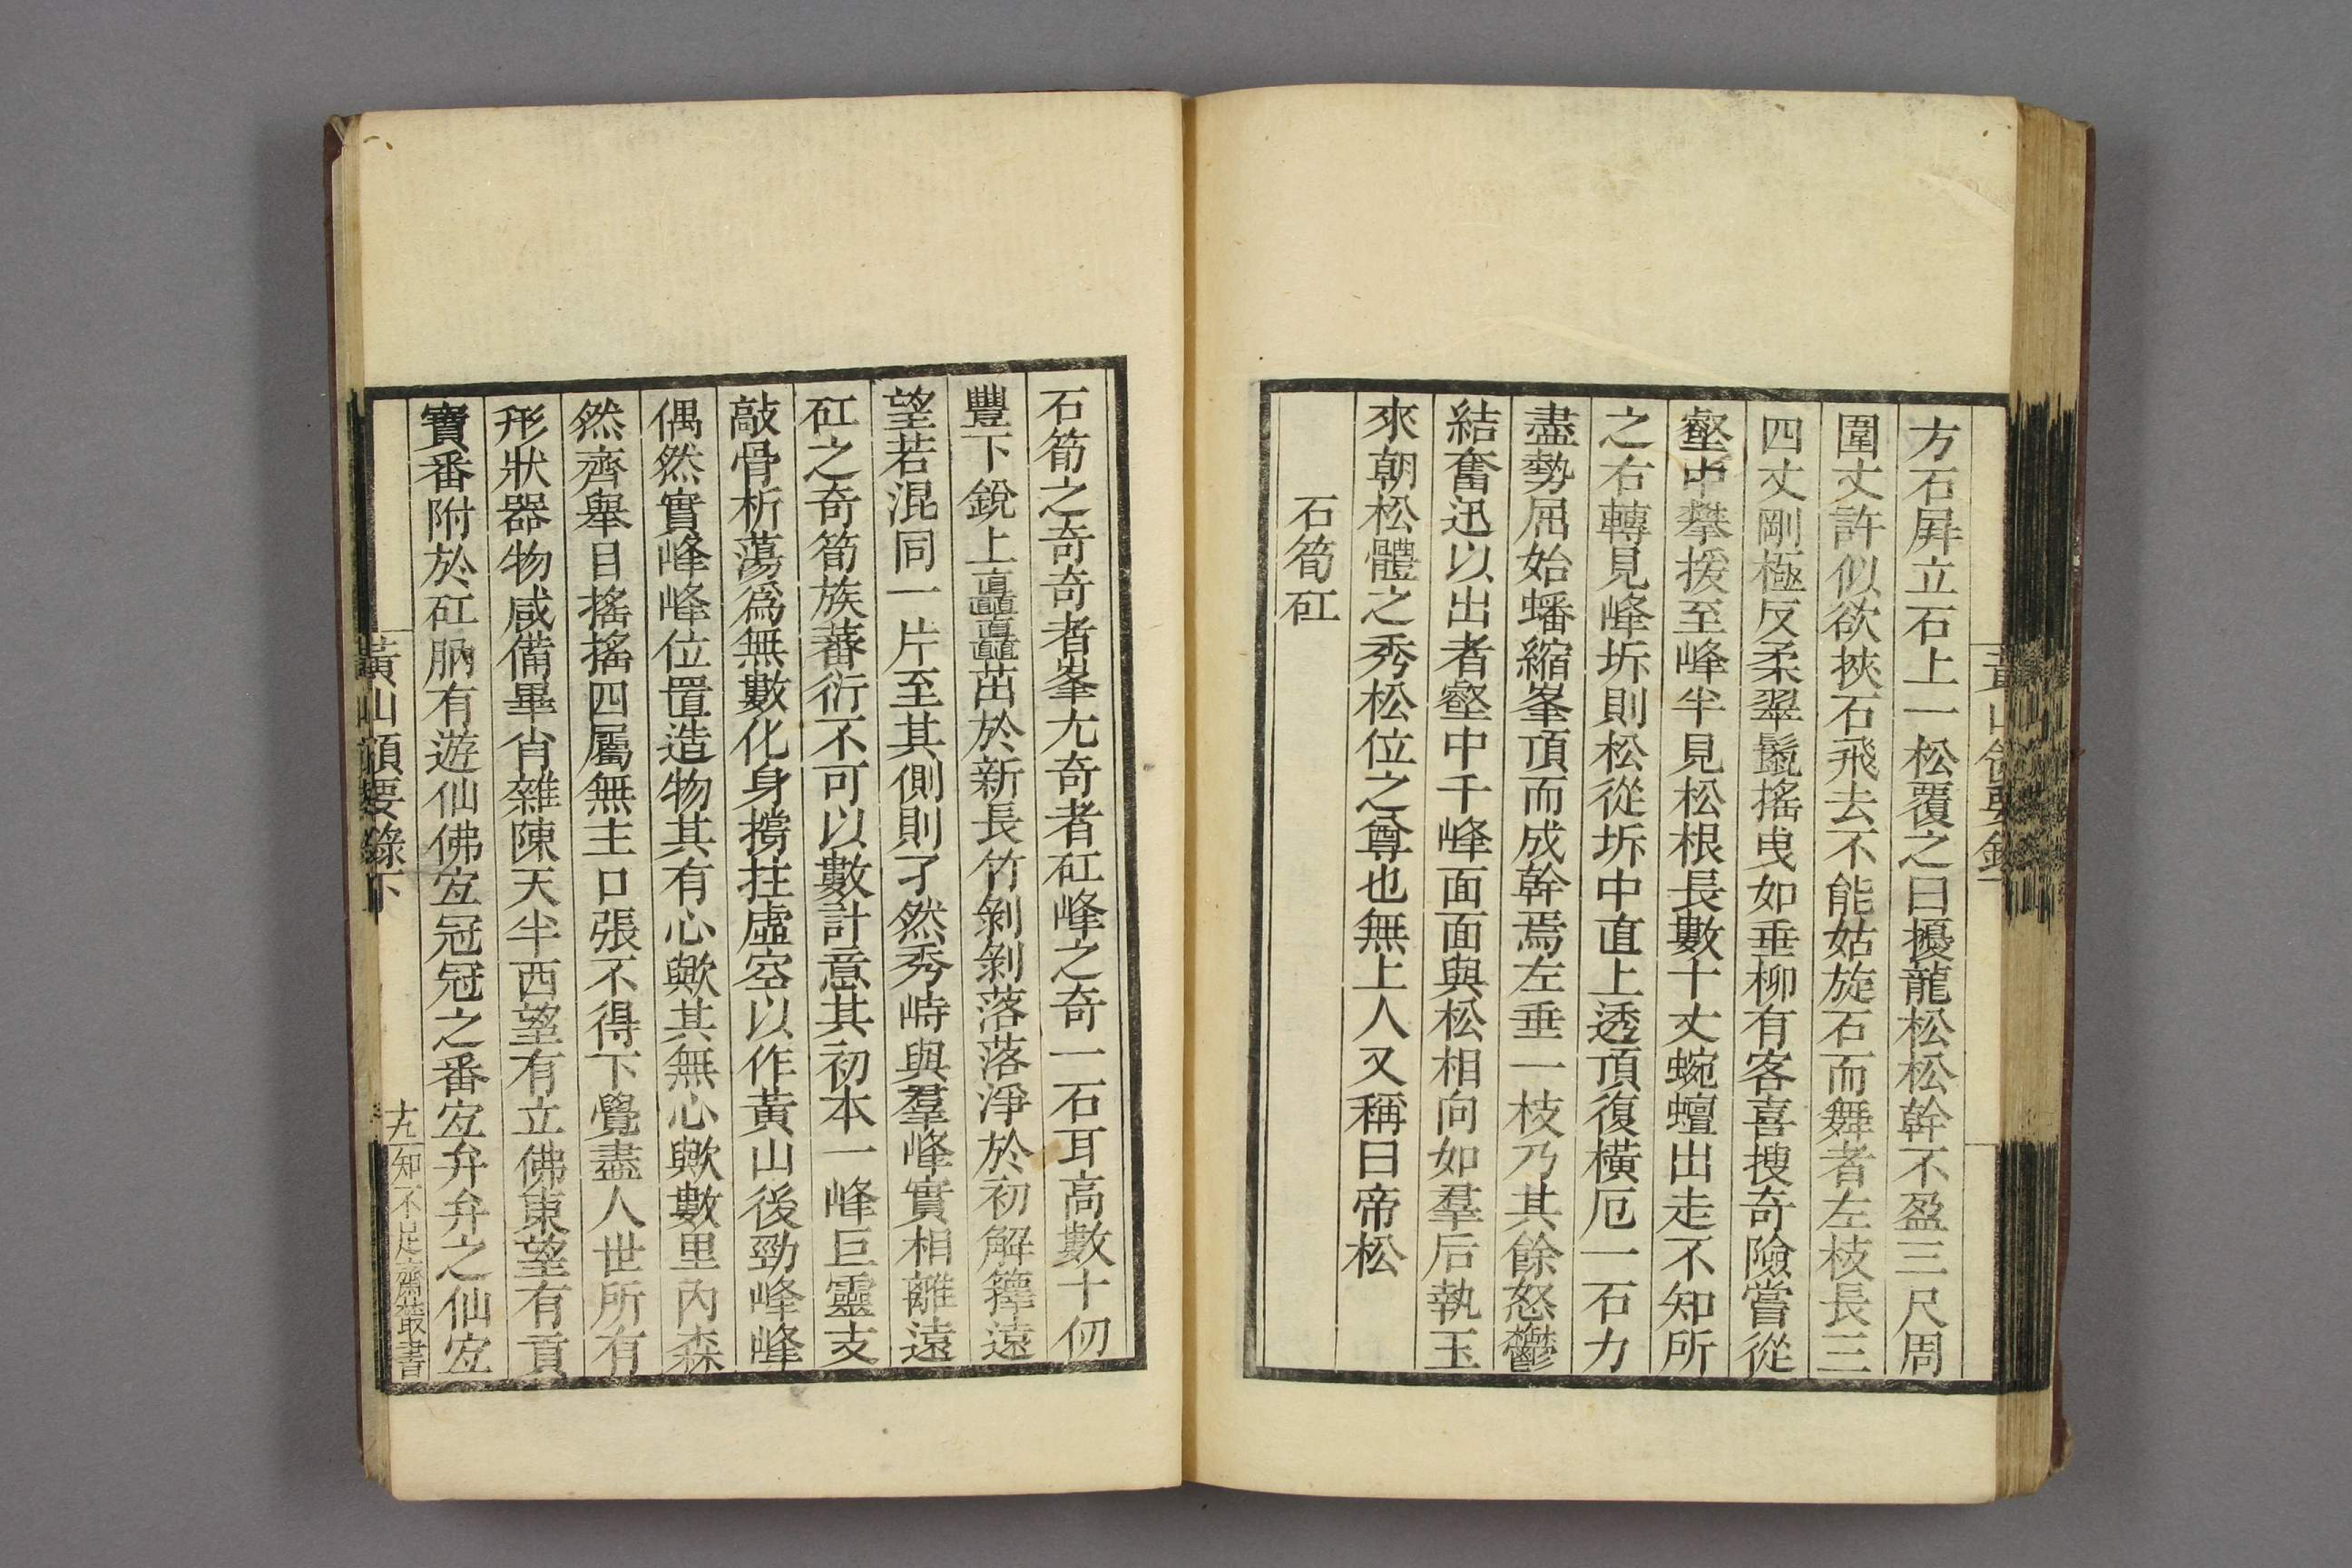 方石屛立石上一松覆之曰擾龍松松幹不盈三尺周
圍丈許似欲挾石飛去不能姑旋石而舞者左枝長三
四丈剛極反柔翠鬣搖曳如垂柳有客喜搜奇險嘗從
壑中攀援至峰半見松根長數十丈蜿蟺出走不知所
之右轉見峰坼則松從坼中直上透頂復橫厄一石力
盡勢屈始蟠縮峯頂而成幹焉左垂一枝乃其餘怒鬱
結奮迅以出者壑中千峰面面與松相向如羣后執玉
來朝松體之秀松位之尊也無上人又稱曰帝松
石筍矼
石筍之奇奇者峯尢奇者矼峰之奇一石耳高數十仞
豐下銳上矗矗茁於新長竹剝剝落落淨於初解籜遠
望若混同一片至其側則孑然秀峙與羣峰實相離遠
矼之奇筍族蕃衍不可以數計意其初本一峰巨靈支
敲骨析蕩爲無數化身撐拄虛空以作黃山後勁峰峰
偶然實峰峰位置造物其有心歟其無心歟數里內森
然齊舉目搖搖四屬無主口張不得下覺盡人世所有
形狀器物咸備畢肖雜陳天半西望有立佛東望有貢
寶番附於矼胹有遊仙佛宐冠冠之番宐弁弁之仙宐
黃山領要錄下
十九
知不足齋叢書